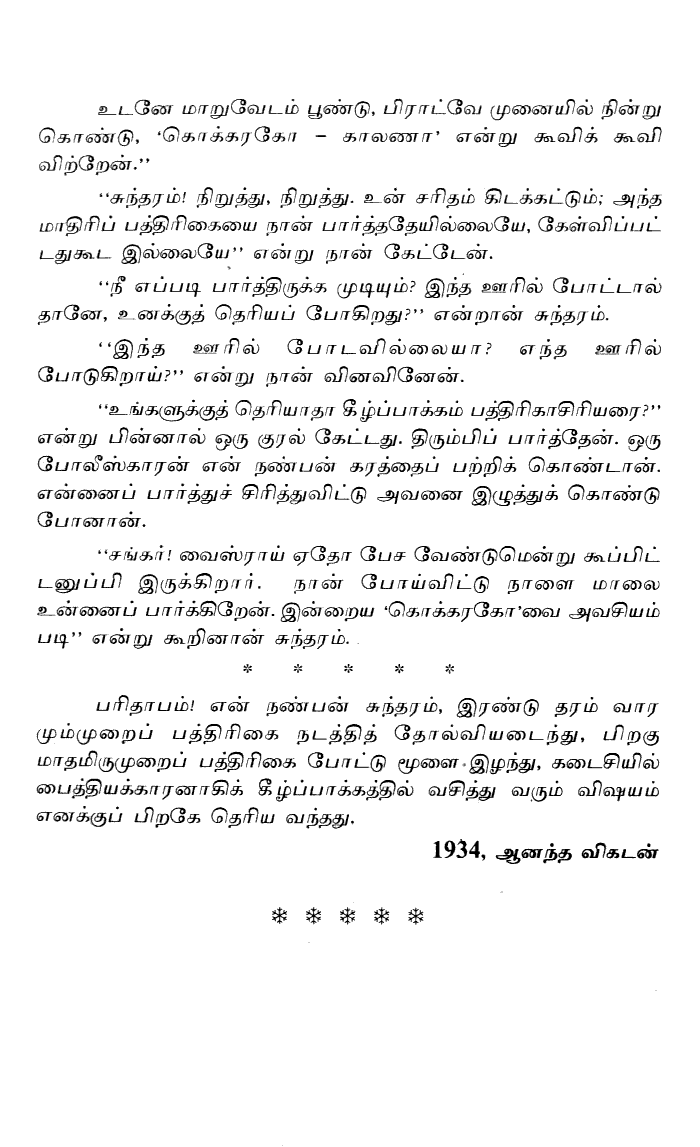 உடனே மாறுவேடம் பூண்டு, பிராட்வே முனையில் நின்று
கொண்டு, ‘கொக்கரகோ – காலணா’ என்று கூவிக் கூவி
விற்றேன்.’’
‘‘சுந்தரம்! நிறுத்து, நிறுத்து. உன் சரிதம் கிடக்கட்டும்; அந்த
மாதிரிப் பத்திரிகையை நான் பார்த்ததேயில்லையே, கேள்விப்பட்
டதுகூட இல்லையே’’ என்று நான் கேட்டேன்.
‘‘நீ எப்படி பார்த்திருக்க முடியும்? இந்த ஊரில் போட்டால்
தானே, உனக்குத் தெரியப் போகிறது?’’ என்றான் சுந்தரம்.
‘‘இந்த ஊரில் போடவில்லையா? எந்த ஊரில்
போடுகிறாய்?’’ என்று நான் வினவினேன்.
‘‘உங்களுக்குத் தெரியாதா கீழ்ப்பாக்கம் பத்திரிகாசிரியரை?’’
என்று பின்னால் ஒரு குரல் கேட்டது. திரும்பிப் பார்த்தேன். ஒரு
போலீஸ்காரன் என் நண்பன் கரத்தைப் பற்றிக் கொண்டான்.
என்னைப் பார்த்துச் சிரித்துவிட்டு அவனை இழுத்துக் கொண்டு
போனான்.
‘‘சங்கர்! வைஸ்ராய் ஏதோ பேச வேண்டுமென்று கூப்பிட்
டனுப்பி இருக்கிறார். நான் போய்விட்டு நாளை மாலை
உன்னைப் பார்க்கிறேன். இன்றைய ‘கொக்கரகோ’வை அவசியம்
படி’’ என்று கூறினான் சுந்தரம்.
* * * * *
பரிதாபம்! என் நண்பன் சுந்தரம், இரண்டு தரம் வார
மும்முறைப் பத்திரிகை நடத்தித் தோல்வியடைந்து, பிறகு
மாதமிருமுறைப் பத்திரிகை போட்டு மூளை இழந்து, கடைசியில்
பைத்தியக்காரனாகிக் கீழ்ப்பாக்கத்தில் வசித்து வரும் விஷயம்
எனக்குப் பிறகே தெரிய வந்தது.
1934, ஆனந்த விகடன்
❄ ❄ ❄ ❄ ❄